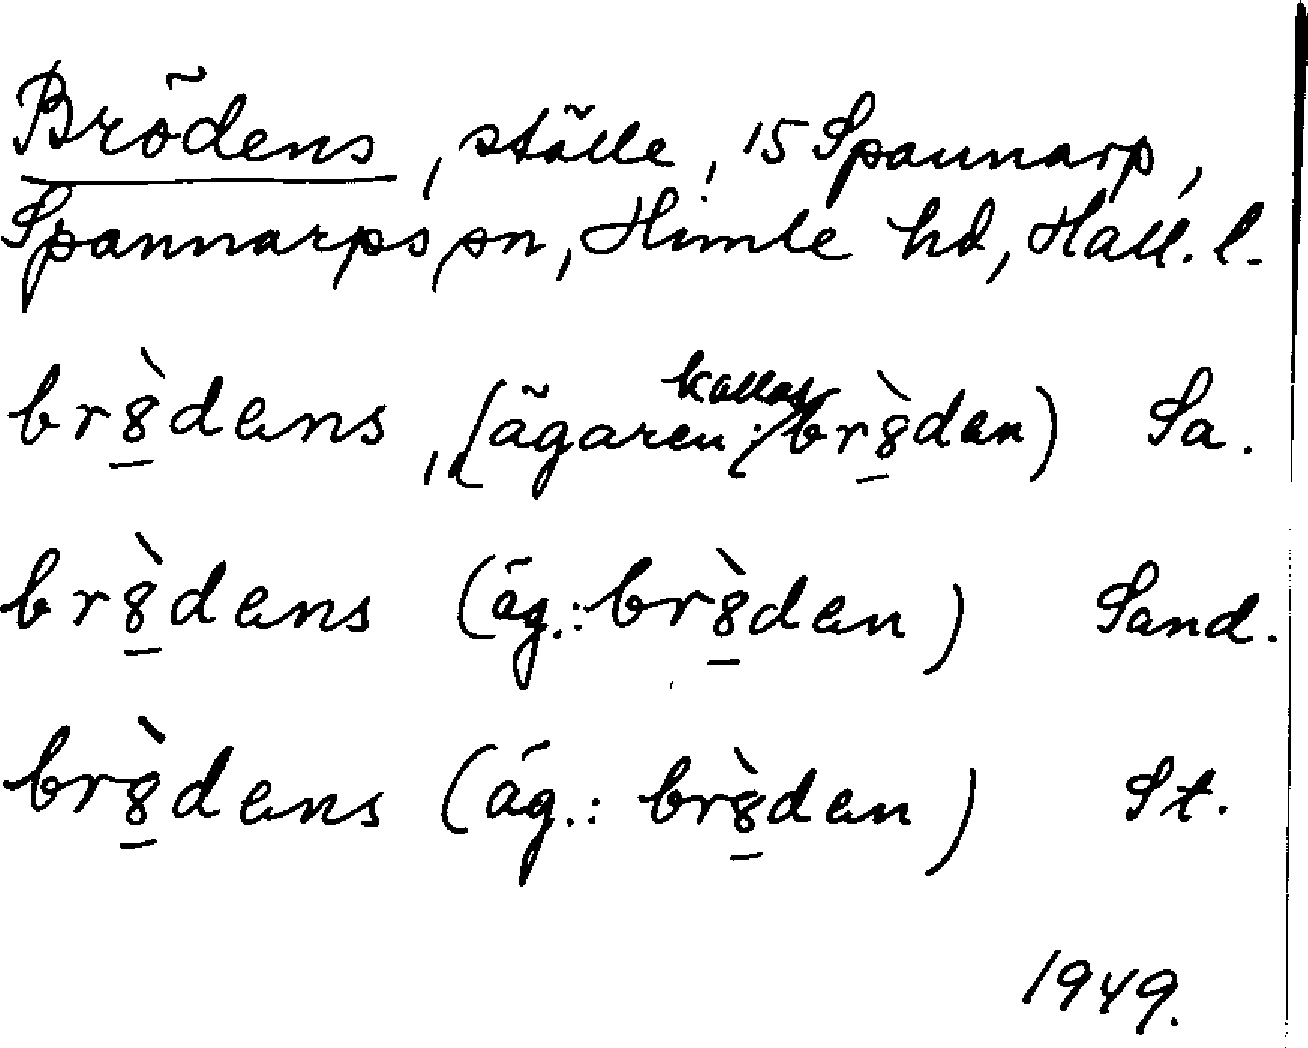 Brödens, ställe, 15 Spannarp,
Spannarps sn, Himle hd, Hall. l.
br8̲̀dens, (ägaren kallas: br8̲̀den) Sa.
br8̲̀dens (äg.: br8̲̀den) Sand.
br8̲̀dens (äg.: br8̲̀den) St.
1949.